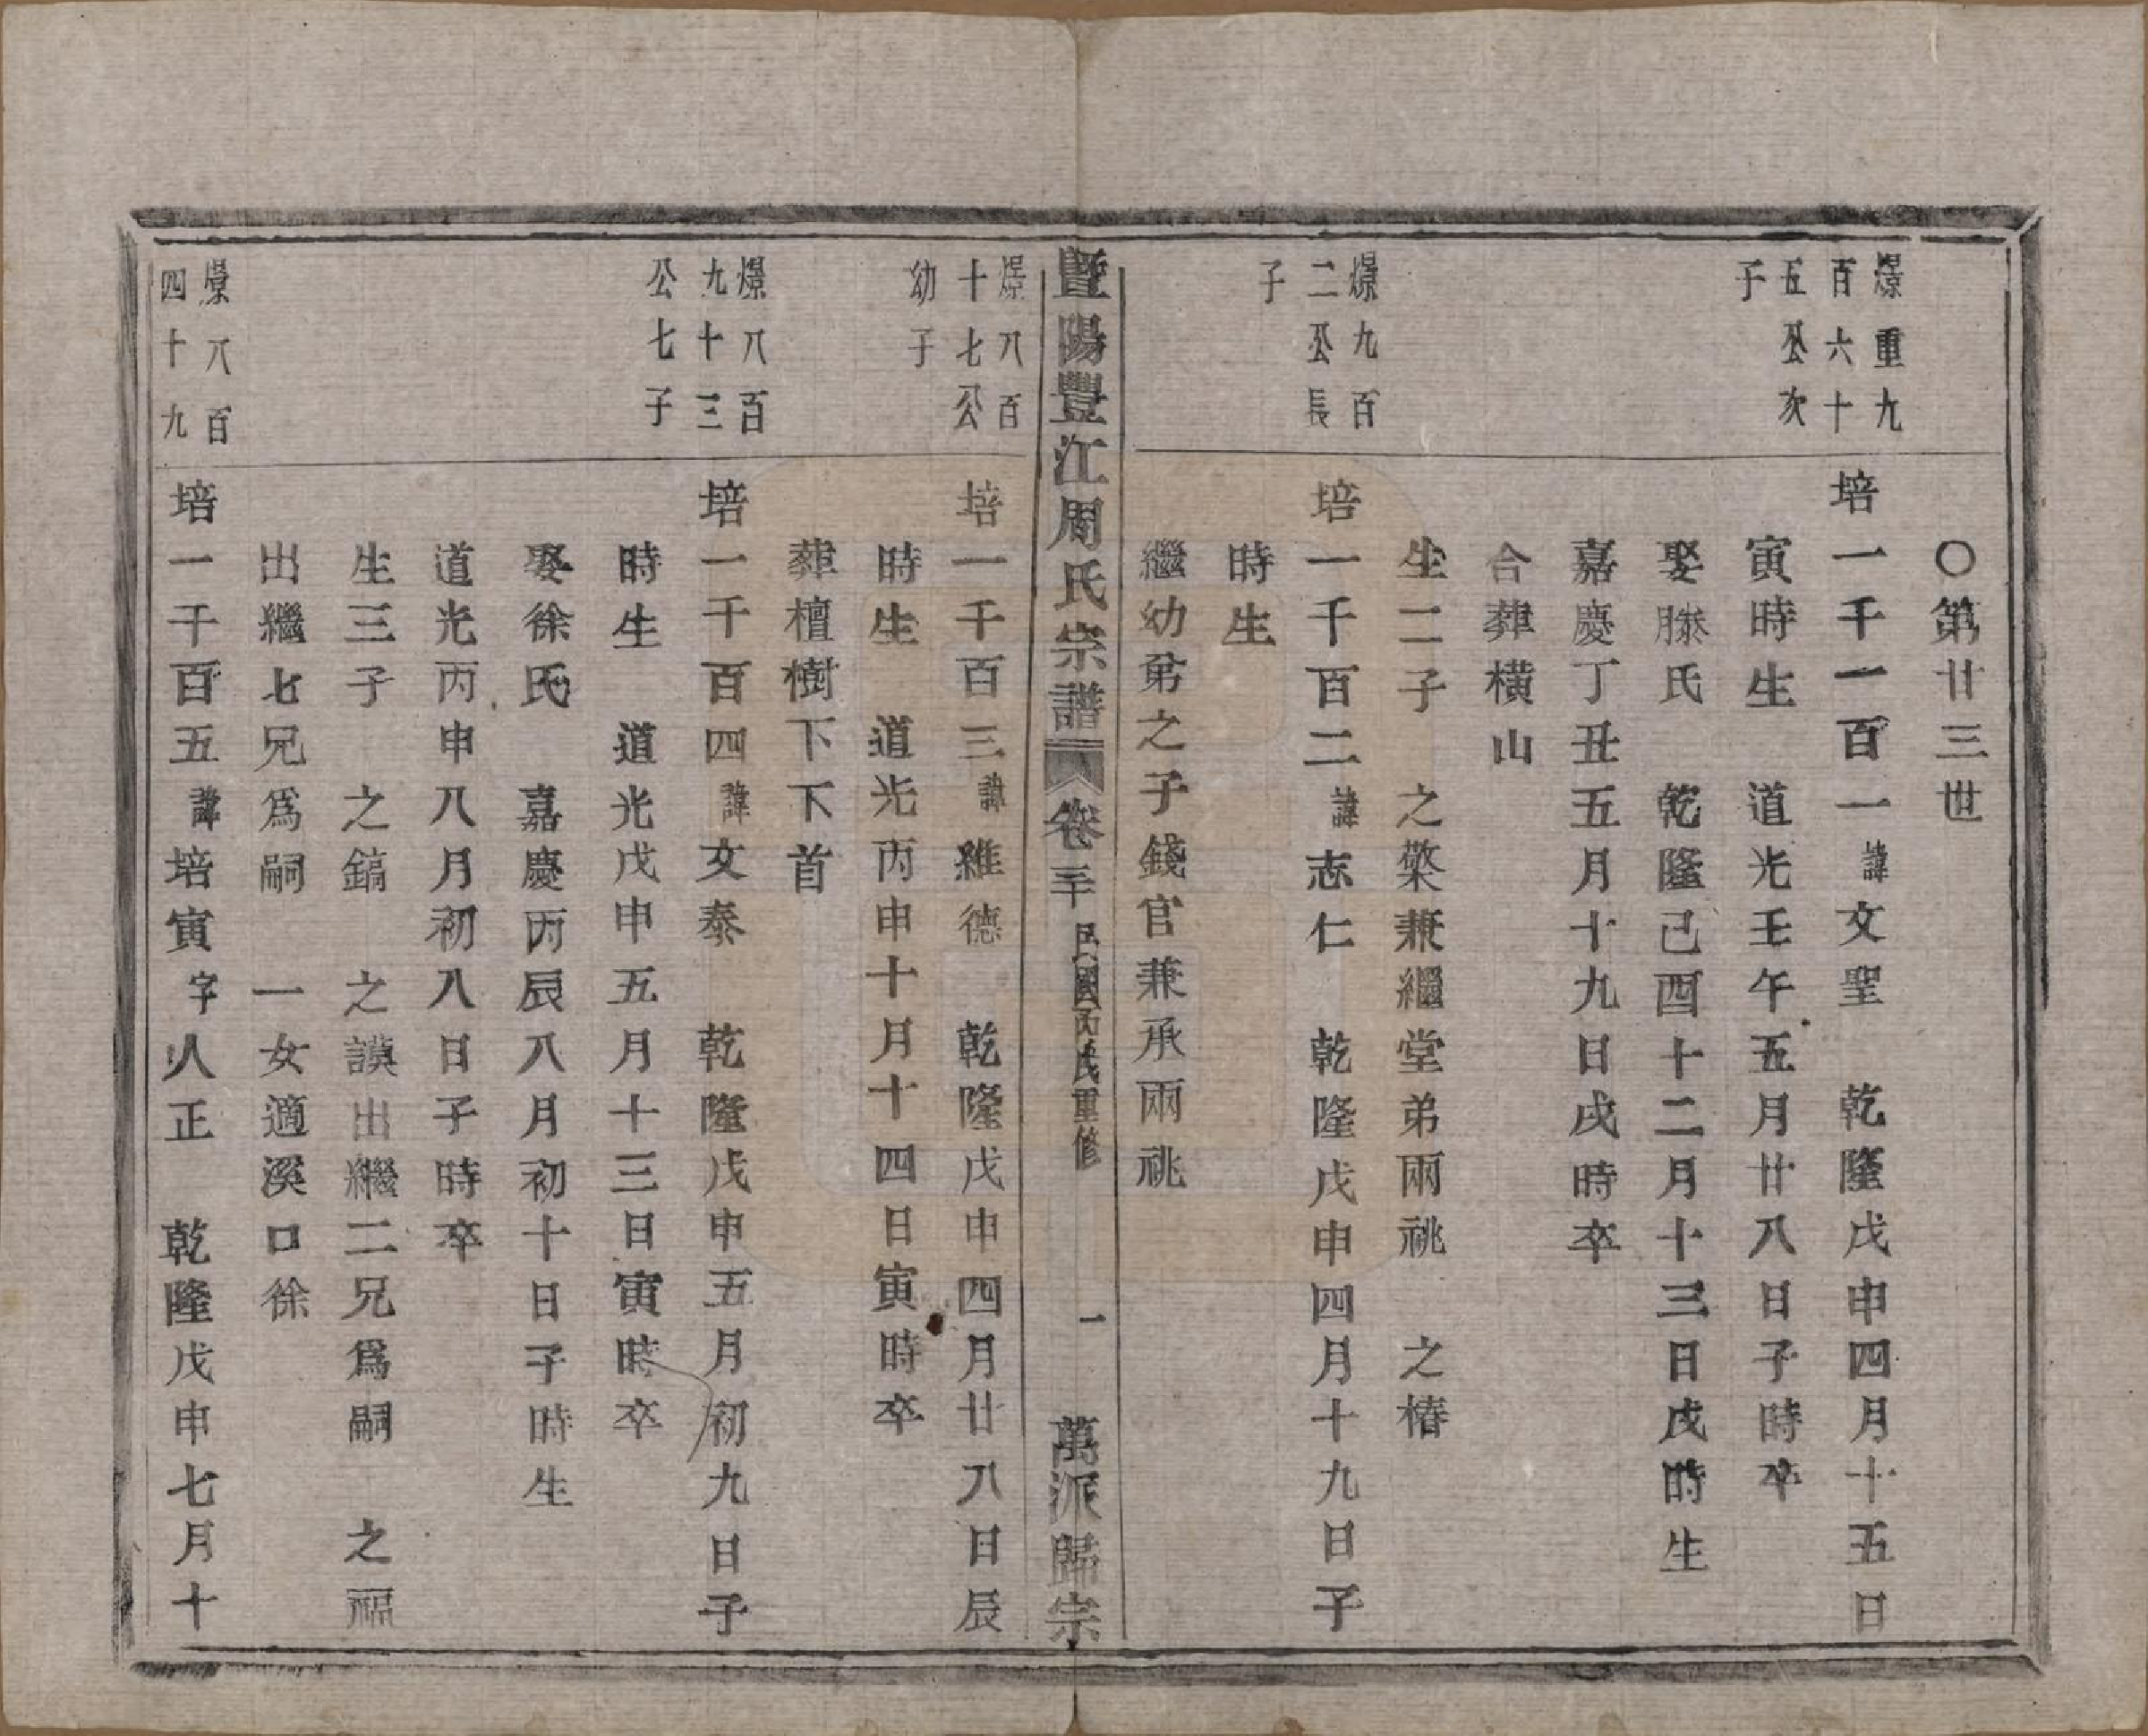 〇第廿三世
爆重九
百六十
五公次
子
培一千一百一諱文聖　乾隆戊申四月十五日
寅時生　道光壬午五月廿八日子時卒
娶滕氏　乾隆己酉十二月十三日戌時生
嘉慶丁丑五月十九日戌時卒
合葬橫山
生二子　之棨兼繼堂弟兩祧　之椿
爆九百
二公長
子
培一千百二諱志仁　乾隆戊申四月十九日子
時生
繼幼弟之子錢官兼承兩祧
暨陽豐江周氏宗譜　卷三十　民國丙戌重修　一　萬派歸宗
爆八百
十七公
幼子
培一千百三諱維德　乾隆戊申四月廿八日辰
時生　道光丙申十月十四日寅時卒
葬檀樹下下首
爆八百
九十三
公七子
培一千百四諱文泰　乾隆戊申五月初九日子
時生　道光戊申五月十三日寅時卒
娶徐氏　嘉慶丙辰八月初十日子時生
道光丙申八月初八日子時卒
生三子　之鎬　之謨出繼二兄爲嗣　之福
出繼七兄爲嗣　一女適溪口徐
爆八百
四十九
培一千百五諱培寅字人正　乾隆戊申七月十